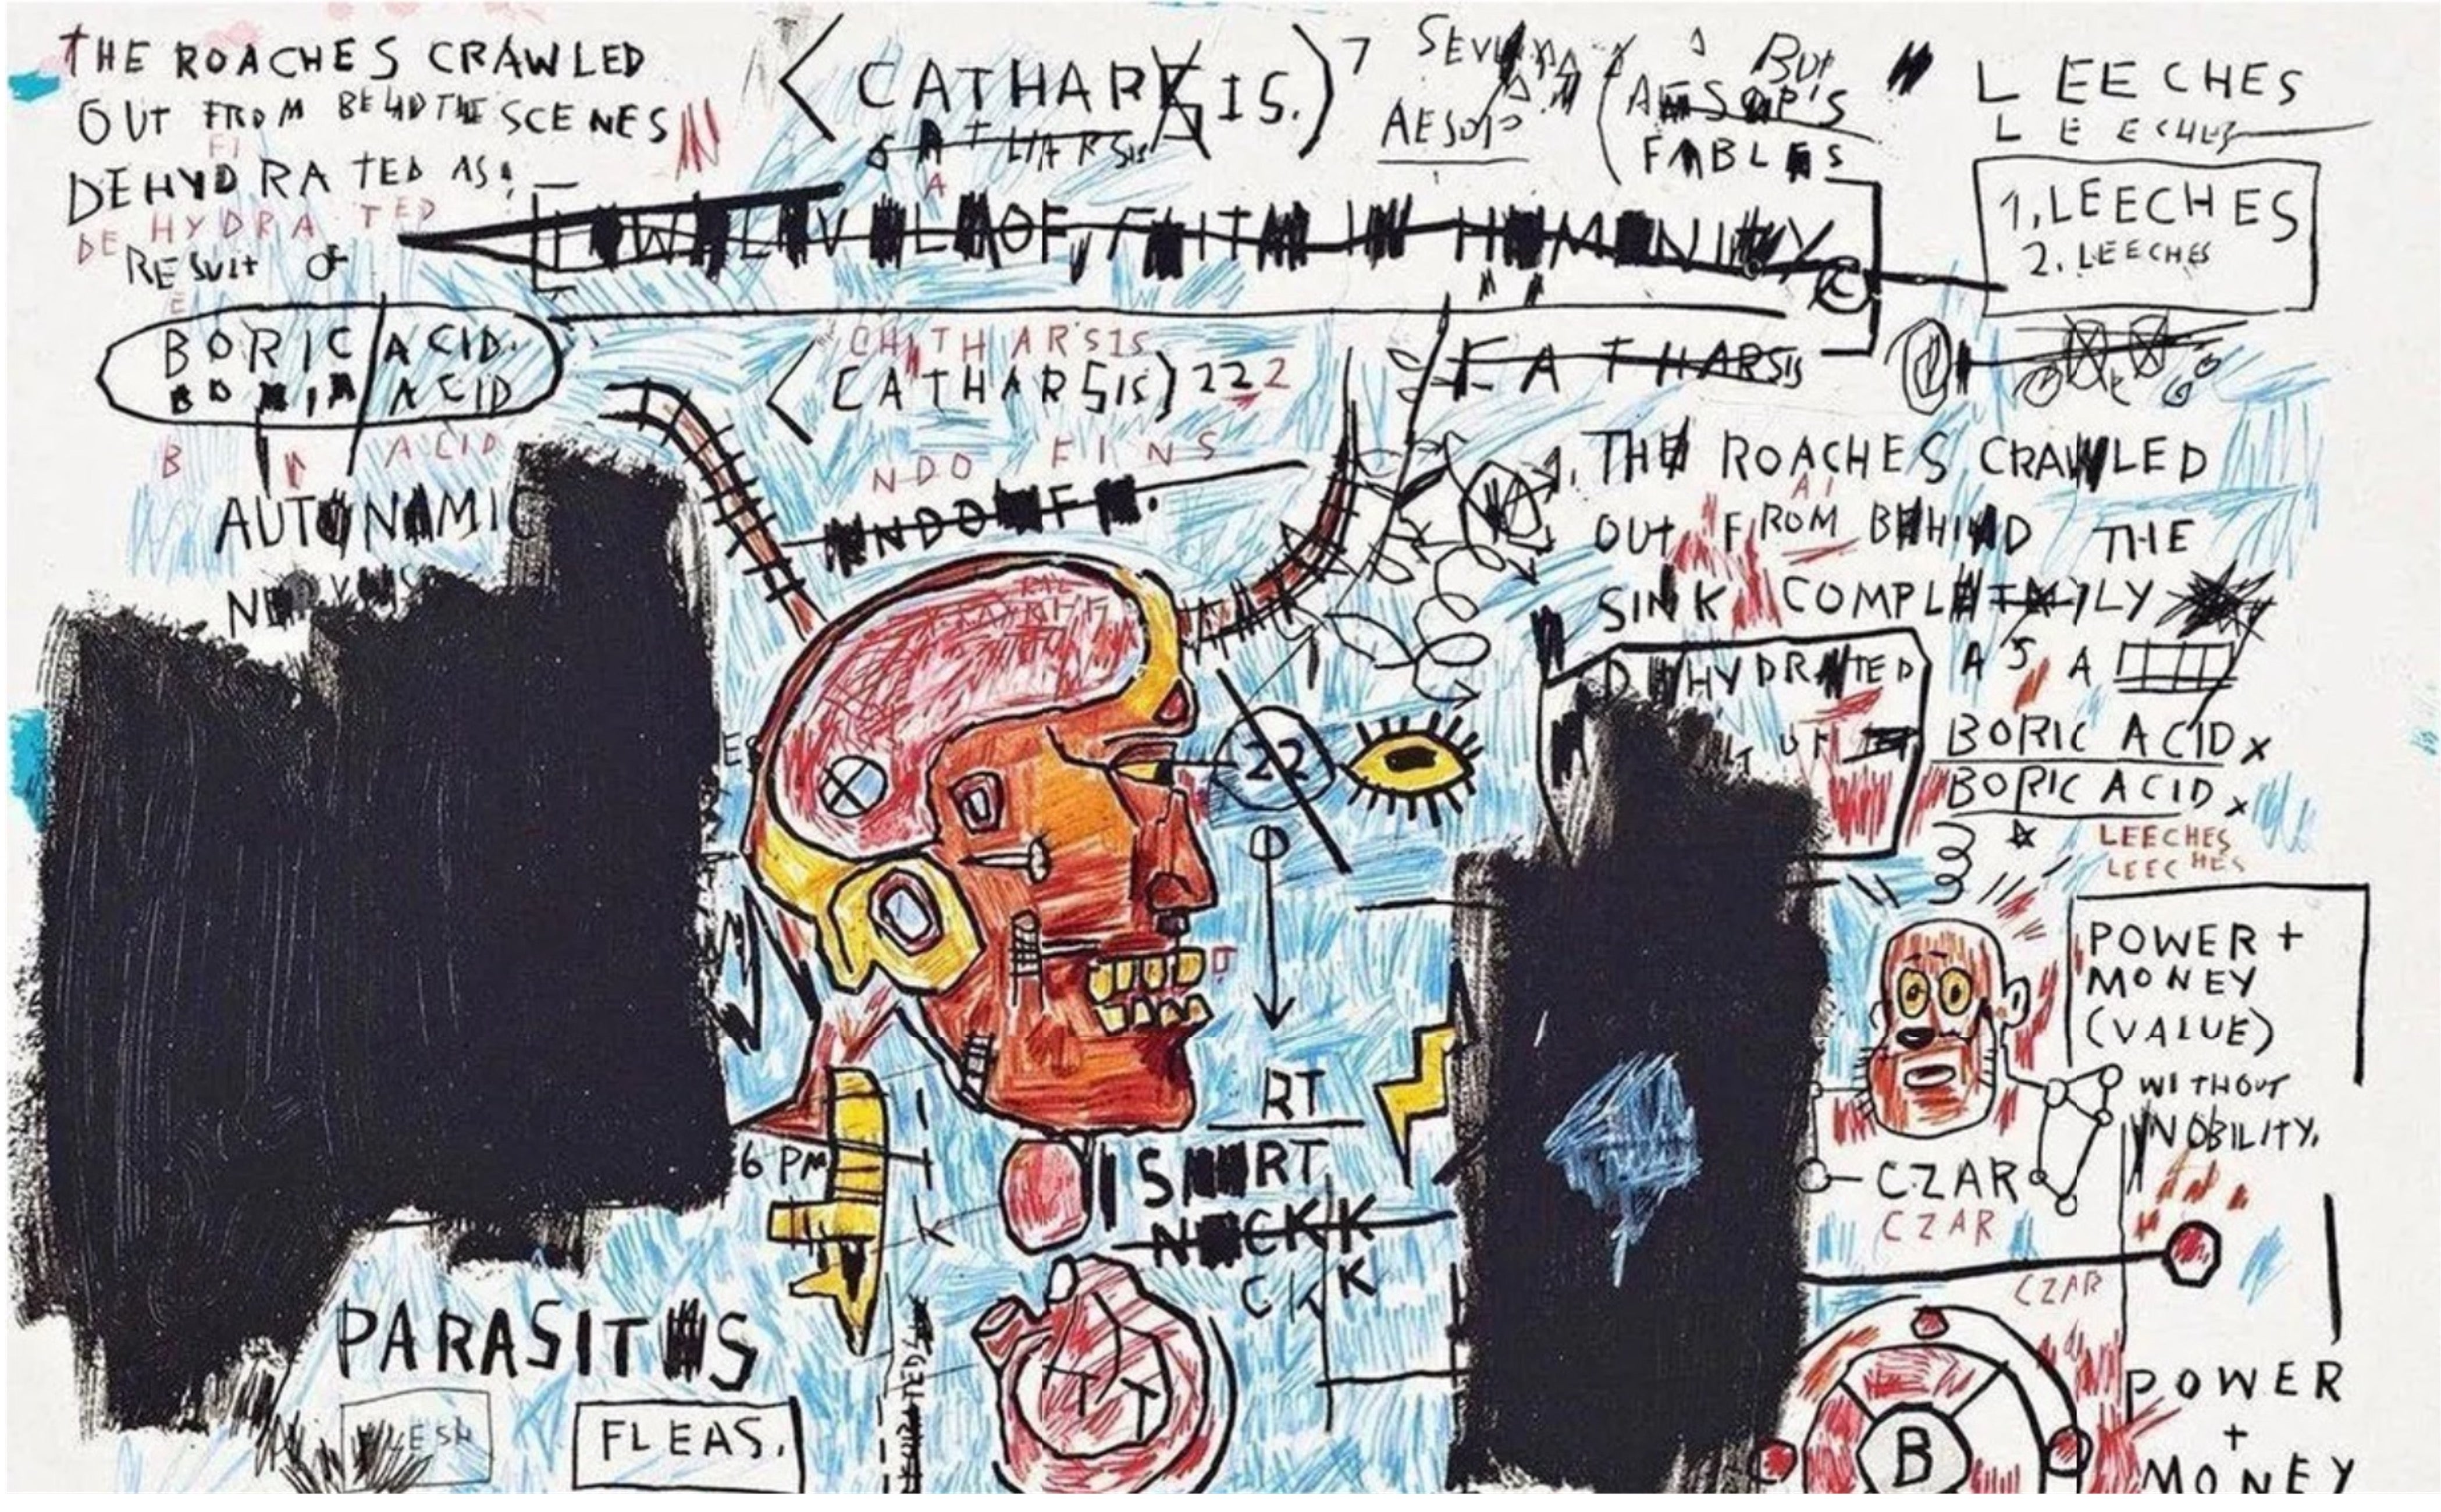 THE ROACHES CRAWLED
OUT FROM BEHIND THE SCENES
DEHYDRATED AS
HYDRATED
DE
RESULT OF
BORIC ACID.
ACID
B ACID
AUTONOMIC
<CATHARSIS.)7
AESOP
AESOP'S
FABLES
LEECHES
LEECHES
1. LEECHES
2. LEECHES
LOW LEVEL OF FAITH IN HUMANITY
©
CHTHARSIS
<CATHARSIS) 222
FATHARSIS
NDO FINS
1. THE ROACHES CRAWLED
OUT FROM BEHIND THE
SINK COMPLETELY
DEHYDRATED AS A
BORIC ACID x
BORIC ACID x
LEECHES
LEECHES
22
POWER +
MONEY
(VALUE)
WITHOUT
NOBILITY.
RT
6 PM
SHORT
NECKK
CKK
CZAR
CZAR
CZAR
PARASITES
ESH
FLEAS.
B
POWER
+
MONEY